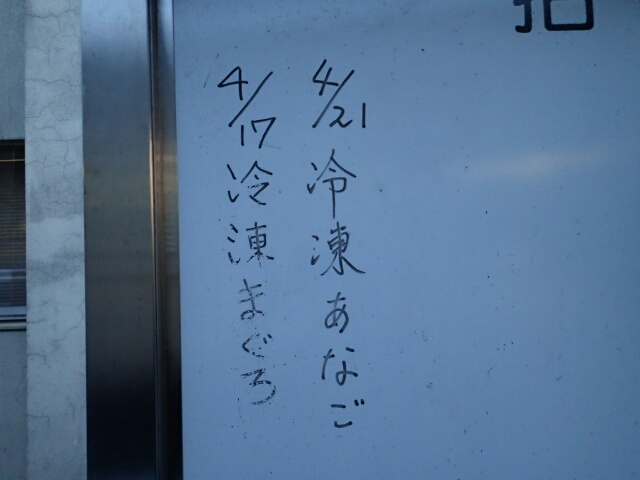 4/21 冷凍あなご
4/17 冷凍まぐろ